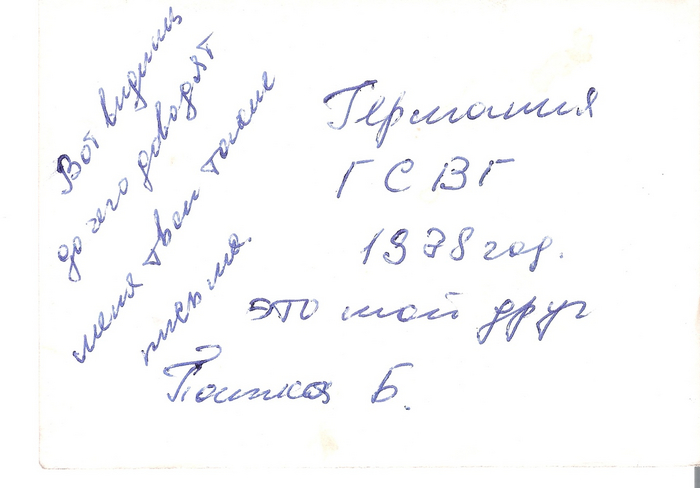 Вот видишь
до чего доводят
меня твои такие
письма.
Германия
ГСВГ
1978 год.
это мой друг
Б.